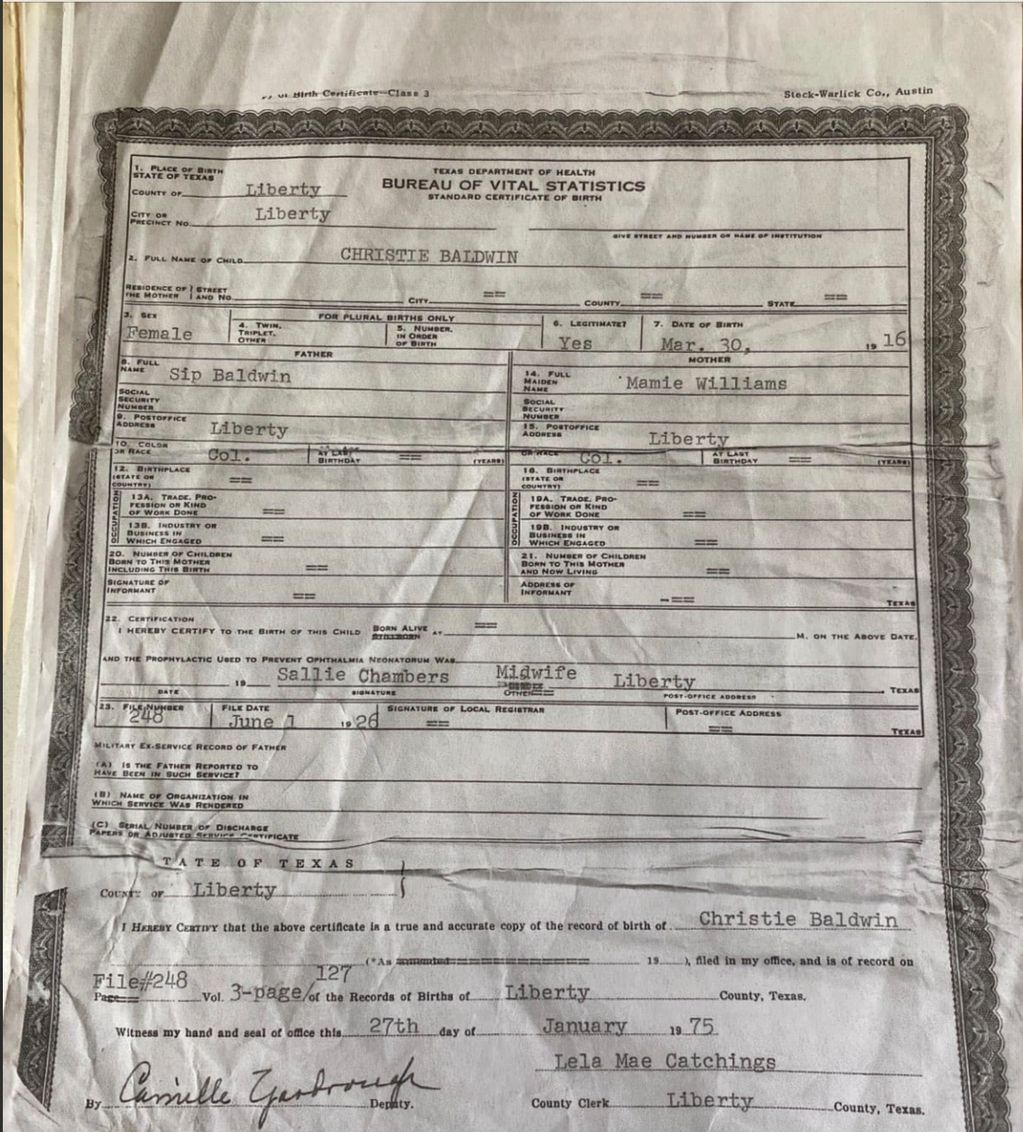 of Birth Certificate—Class 3 Steck-Warlick Co., Austin
1. PLACE OF BIRTH
STATE OF TEXAS
COUNTY OF Liberty
CITY OR
PRECINCT No. Liberty
TEXAS DEPARTMENT OF HEALTH
BUREAU OF VITAL STATISTICS
STANDARD CERTIFICATE OF BIRTH
GIVE STREET AND NUMBER OR NAME OF INSTITUTION
2. FULL NAME OF CHILD CHRISTIE BALDWIN
RESIDENCE OF } STREET
THE MOTHER } AND No. CITY == COUNTY == STATE ==
3. SEX
Female
FOR PLURAL BIRTHS ONLY
4. TWIN,
TRIPLET,
OTHER
5. NUMBER,
IN ORDER
OF BIRTH
6. LEGITIMATE?
Yes
7. DATE OF BIRTH
Mar. 30, 19 16
FATHER
8. FULL
NAME Sip Baldwin
SOCIAL
SECURITY
NUMBER
9. POSTOFFICE
ADDRESS Liberty
10. COLOR
OR RACE Col. AT LAST
BIRTHDAY == (YEARS)
12. BIRTHPLACE
(STATE OR
COUNTRY) ==
OCCUPATION
13A. TRADE, PRO-
FESSION OR KIND
OF WORK DONE ==
13B. INDUSTRY OR
BUSINESS IN
WHICH ENGAGED ==
20. NUMBER OF CHILDREN
BORN TO THIS MOTHER
INCLUDING THIS BIRTH ==
SIGNATURE OF
INFORMANT ==
MOTHER
14. FULL
MAIDEN
NAME Mamie Williams
SOCIAL
SECURITY
NUMBER
15. POSTOFFICE
ADDRESS Liberty
OR RACE Col. AT LAST
BIRTHDAY == (YEARS)
18. BIRTHPLACE
(STATE OR
COUNTRY) ==
OCCUPATION
19A. TRADE, PRO-
FESSION OR KIND
OF WORK DONE ==
19B. INDUSTRY OR
BUSINESS IN
WHICH ENGAGED ==
21. NUMBER OF CHILDREN
BORN TO THIS MOTHER
AND NOW LIVING ==
ADDRESS OF
INFORMANT -== TEXAS
22. CERTIFICATION
I HEREBY CERTIFY TO THE BIRTH OF THIS CHILD BORN ALIVE
STILLBORN AT == M. ON THE ABOVE DATE.
AND THE PROPHYLACTIC USED TO PREVENT OPHTHALMIA NEONATORUM WAS
19 Sallie Chambers Midwife Liberty TEXAS
DATE SIGNATURE OTHER== POST-OFFICE ADDRESS
23. FILE NUMBER
248
FILE DATE
June 1 19 26
SIGNATURE OF LOCAL REGISTRAR
==
POST-OFFICE ADDRESS
== TEXAS
MILITARY EX-SERVICE RECORD OF FATHER
(A) IS THE FATHER REPORTED TO
HAVE BEEN IN SUCH SERVICE?
(B) NAME OF ORGANIZATION IN
WHICH SERVICE WAS RENDERED
(C) SERIAL NUMBER OF DISCHARGE
PAPERS OR ADJUSTED SERVICE CERTIFICATE
TATE OF TEXAS }
COUNTY OF Liberty
I HEREBY CERTIFY that the above certificate is a true and accurate copy of the record of birth of Christie Baldwin
(*As amended 19 ), filed in my office, and is of record on
File#248
Page== Vol. 3-page/127 of the Records of Births of Liberty County, Texas.
Witness my hand and seal of office this 27th day of January 19 75
Lela Mae Catchings
By Camille Yarbrough Deputy. County Clerk Liberty County, Texas.